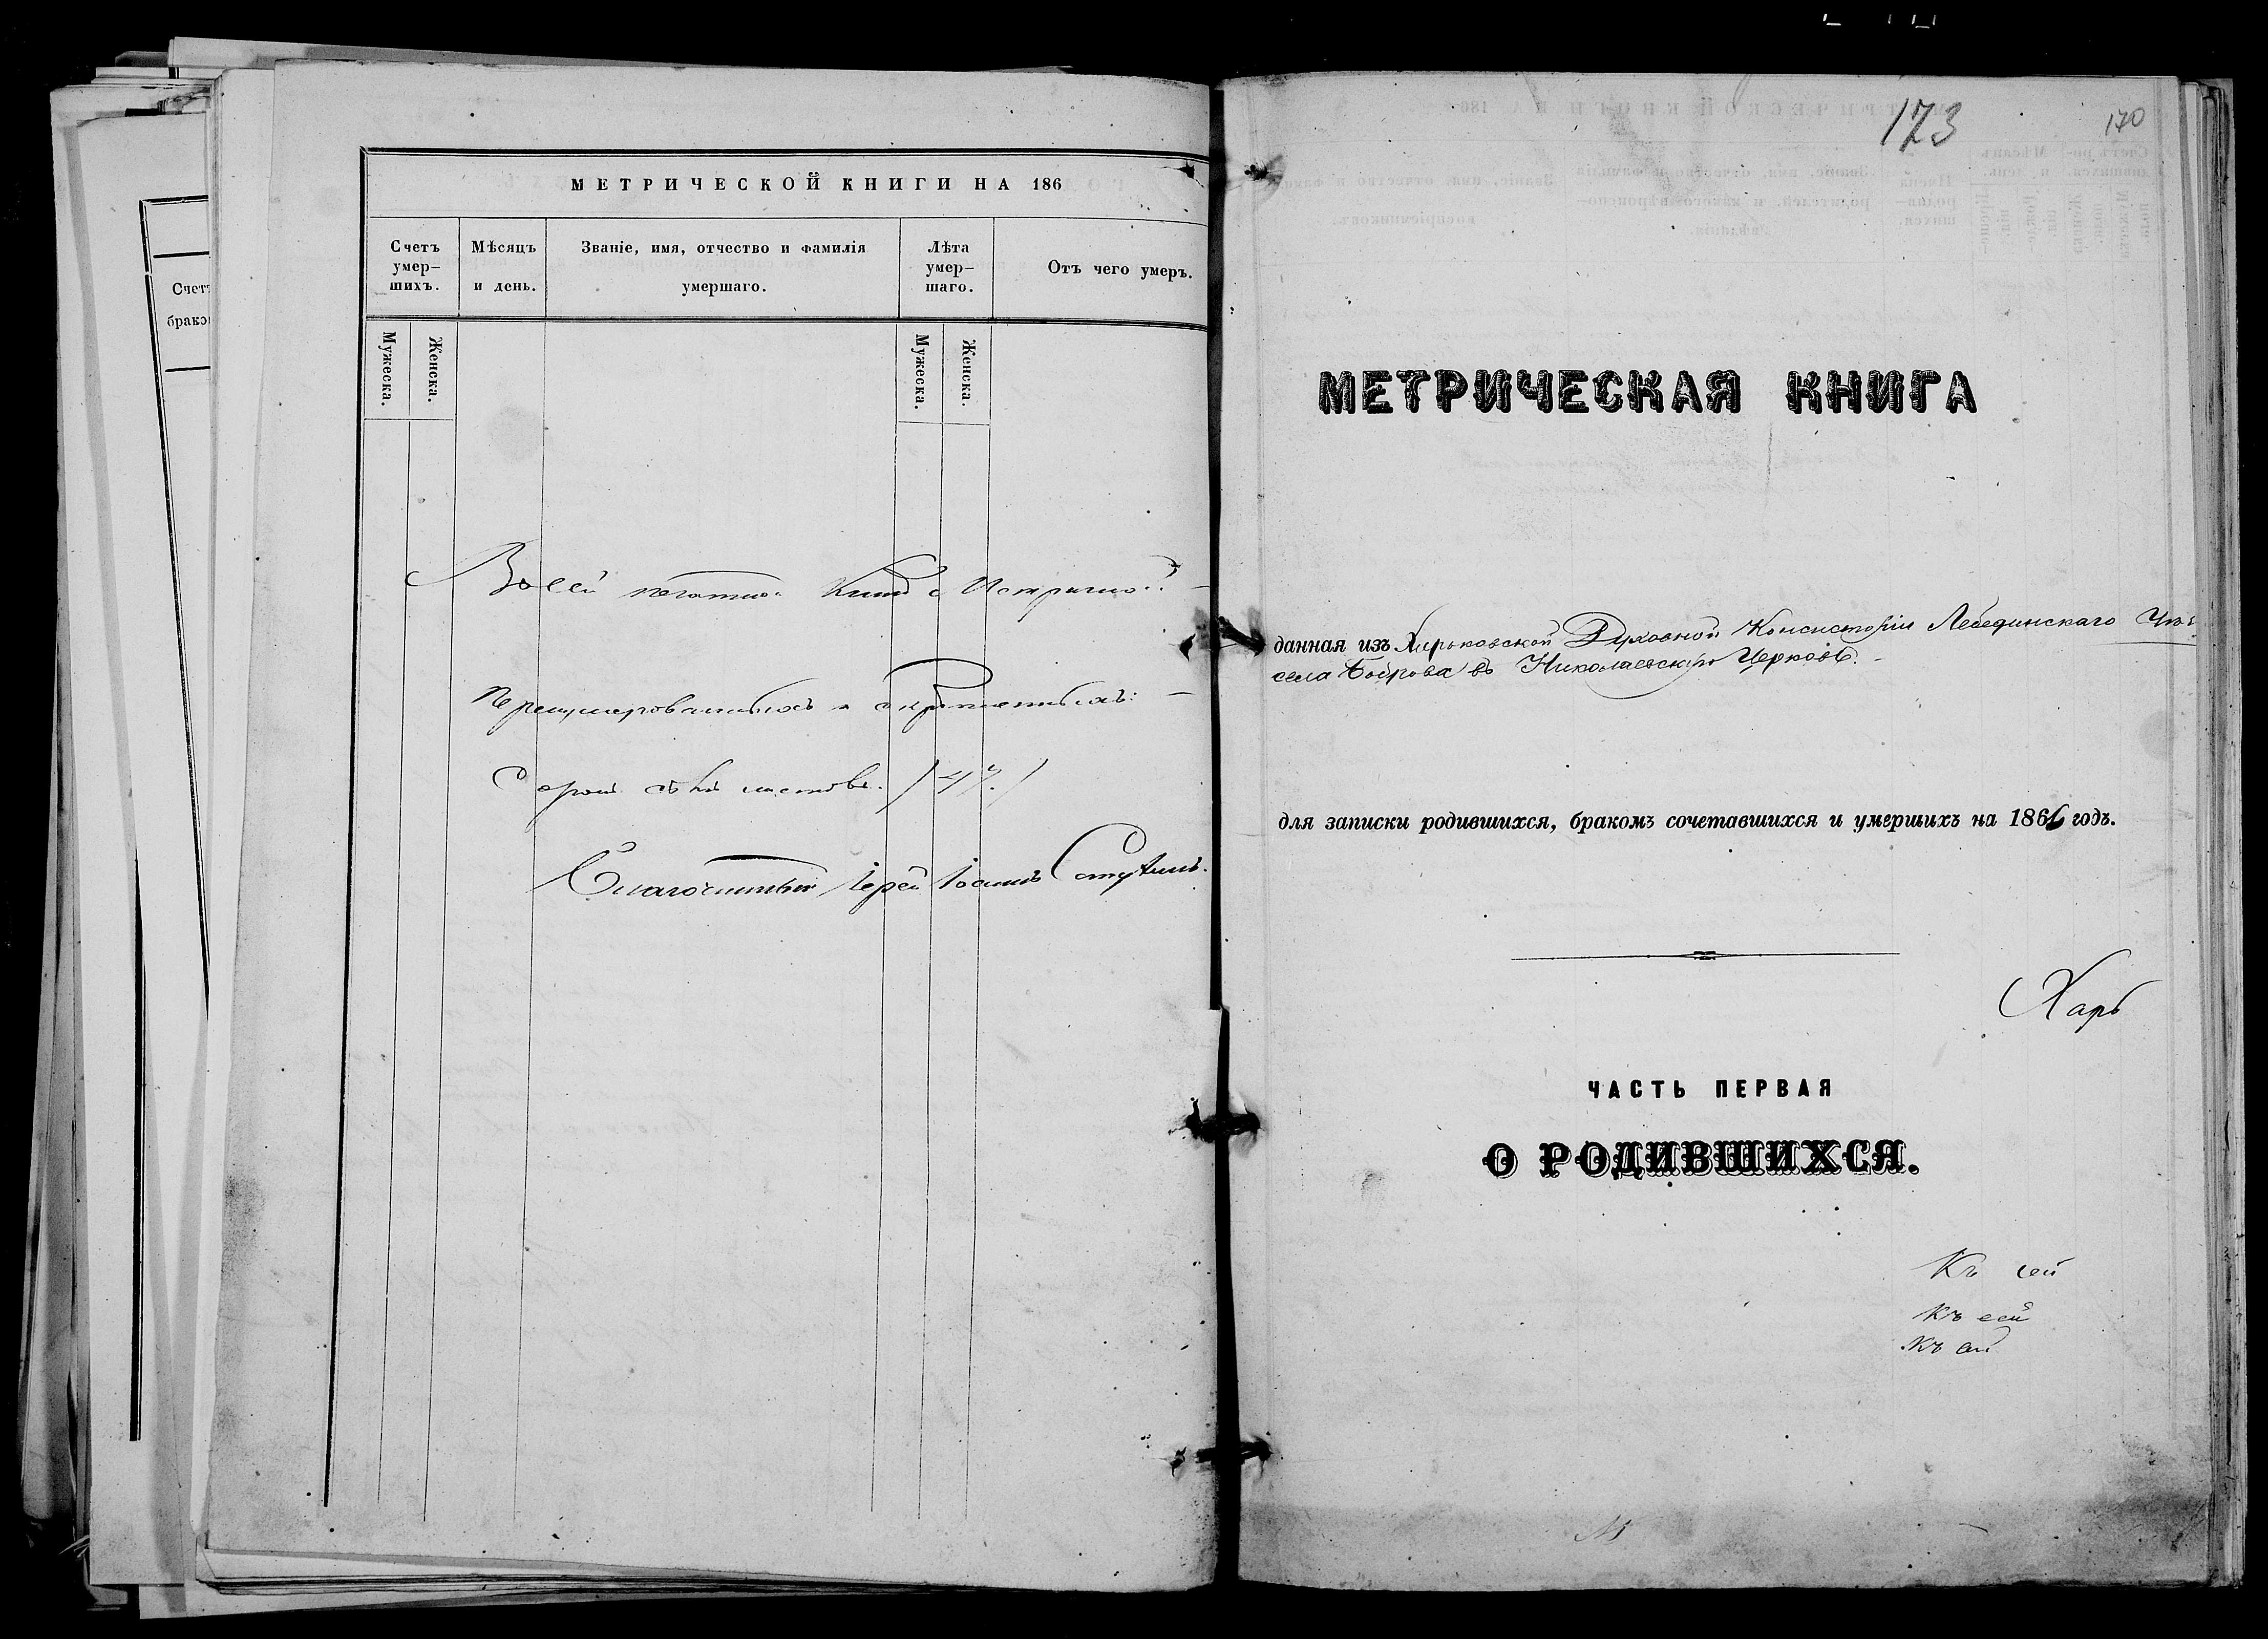 Счетъ
брако
МЕТРИЧЕСКОЙ КНИГИ НА 186
Счетъ умер-шихъ.
Мѣсяцъ и день.
Званіе, имя, отчество и фамилія умершаго.
Лѣта умер-шаго.
Отъ чего умеръ.
Мужеска.
Женска.
Мужеска.
Женска.
Въ сей
Сорокъ листовъ. /47./
Благочинный Іерей Іоаннъ
173
170
МЕТРИЧЕСКАЯ КНИГА
данная изъ Харьковской Духовной Консисторіи Лебединскаго
села Боброва въ Николаевскую Церковь.
для записки родившихся, бракомъ сочетавшихся и умершихъ на 1861 годъ.
Харь
ЧАСТЬ ПЕРВАЯ
О РОДИВШИХСЯ.
Къ сей
Къ сей
Къ